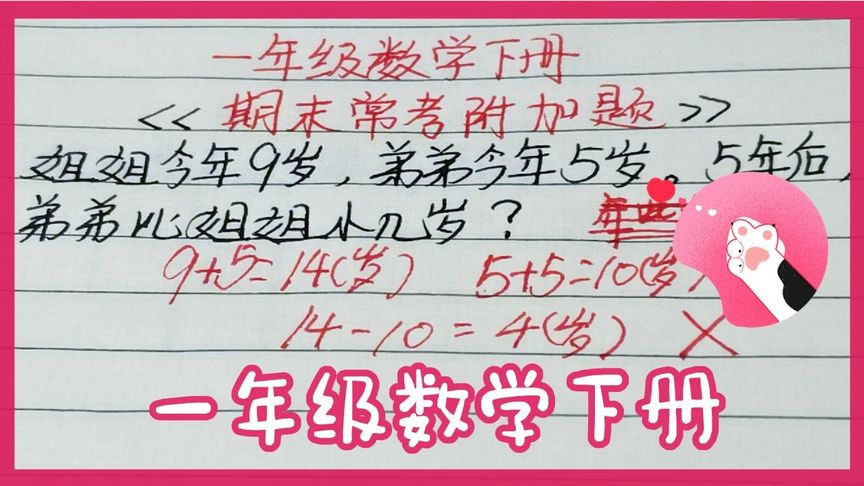 一年级数学下册
<<期末常考附加题>>
姐姐今年9岁，弟弟今年5岁。5年后，
弟弟比姐姐小几岁？
9+5=14(岁) 5+5=10(岁)
14-10=4(岁) ×
一年级数学下册